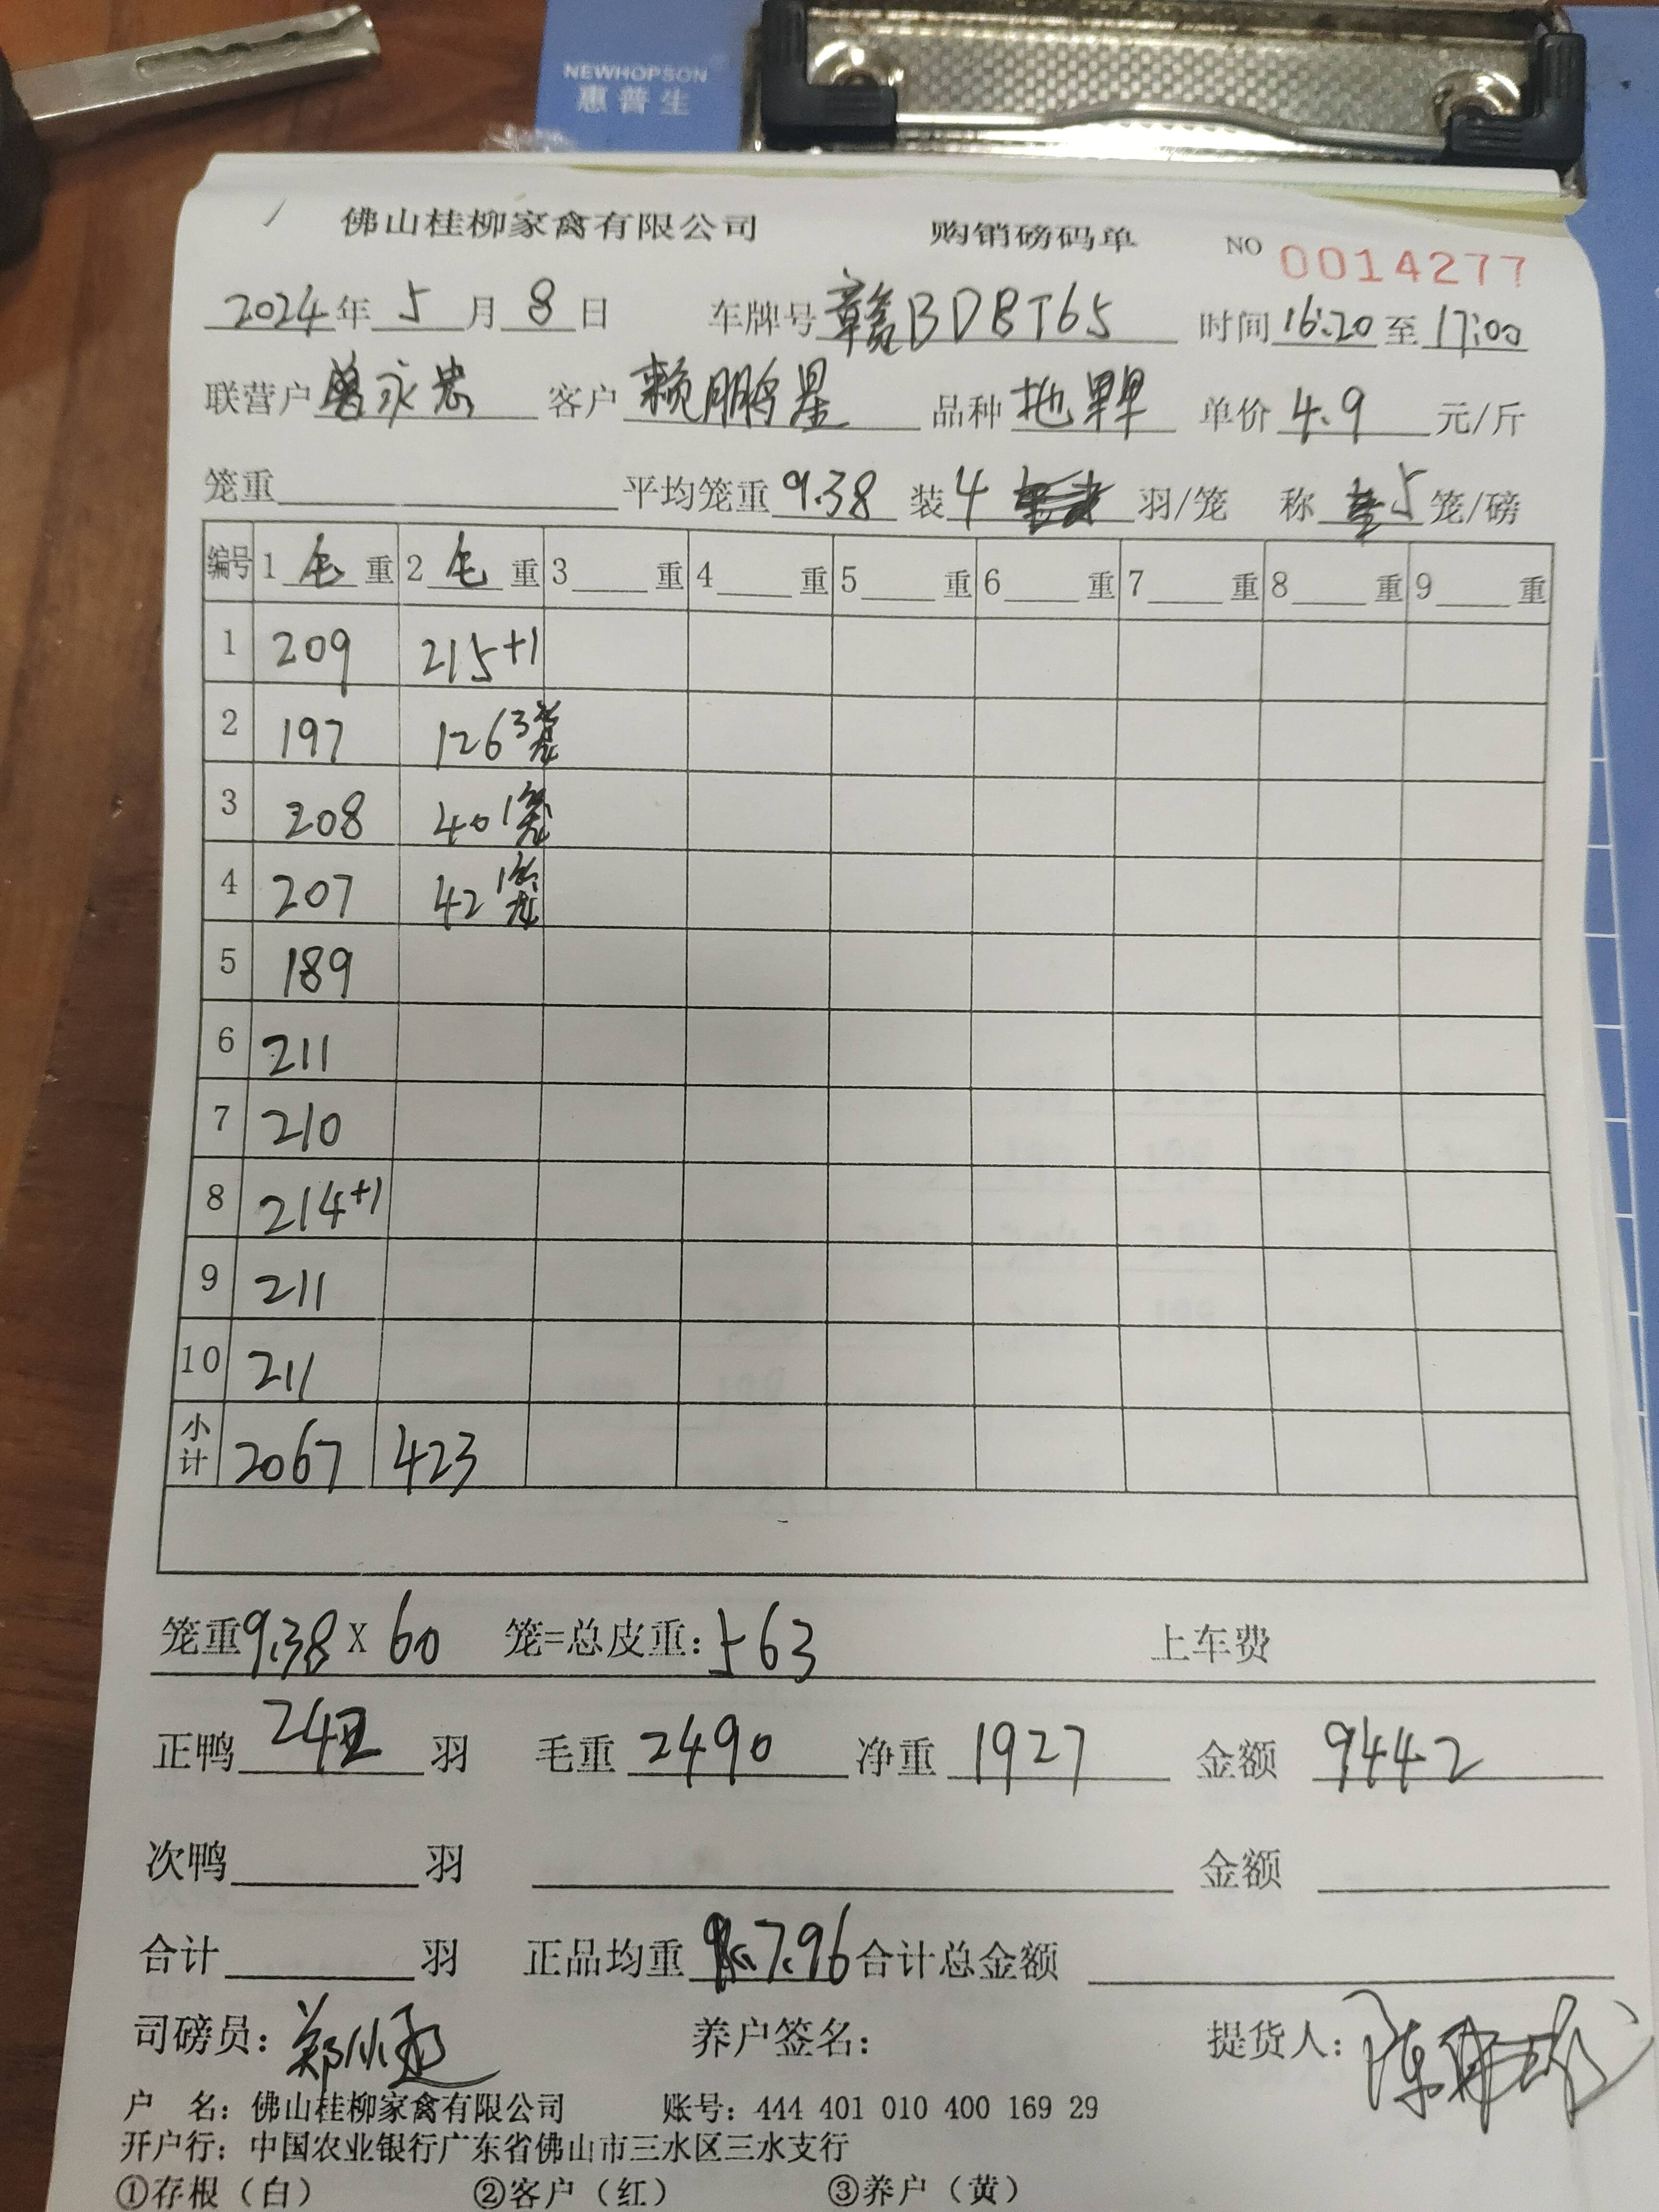 NEWHOPSON
惠普生
佛山桂柳家禽有限公司 购销磅码单 NO 0014277
2024年5月8日 车牌号赣BDBT65 时间16:20至17:00
联营户曾永忠 客户赖鹏星 品种 单价4.9元/斤
笼重 平均笼重9.38 装4 羽/笼 称5笼/磅
编号 1毛重 2毛重 3重 4重 5重 6重 7重 8重 9重
1 209 215+1
2 197 126 3笼
3 208 40 1笼
4 207 42 1笼
5 189
6 211
7 210
8 214+1
9 211
10 211
小计 2067 423
笼重9.38X60 笼=总皮重:563 上车费
正鸭242羽 毛重2490 净重1927 金额9442
次鸭 羽 金额
合计 羽 正品均重7.96 合计总金额
司磅员: 养户签名: 提货人:
户 名:佛山桂柳家禽有限公司 账号:444 401 010 400 169 29
开户行:中国农业银行广东省佛山市三水区三水支行
①存根(白) ②客户(红) ③养户(黄)